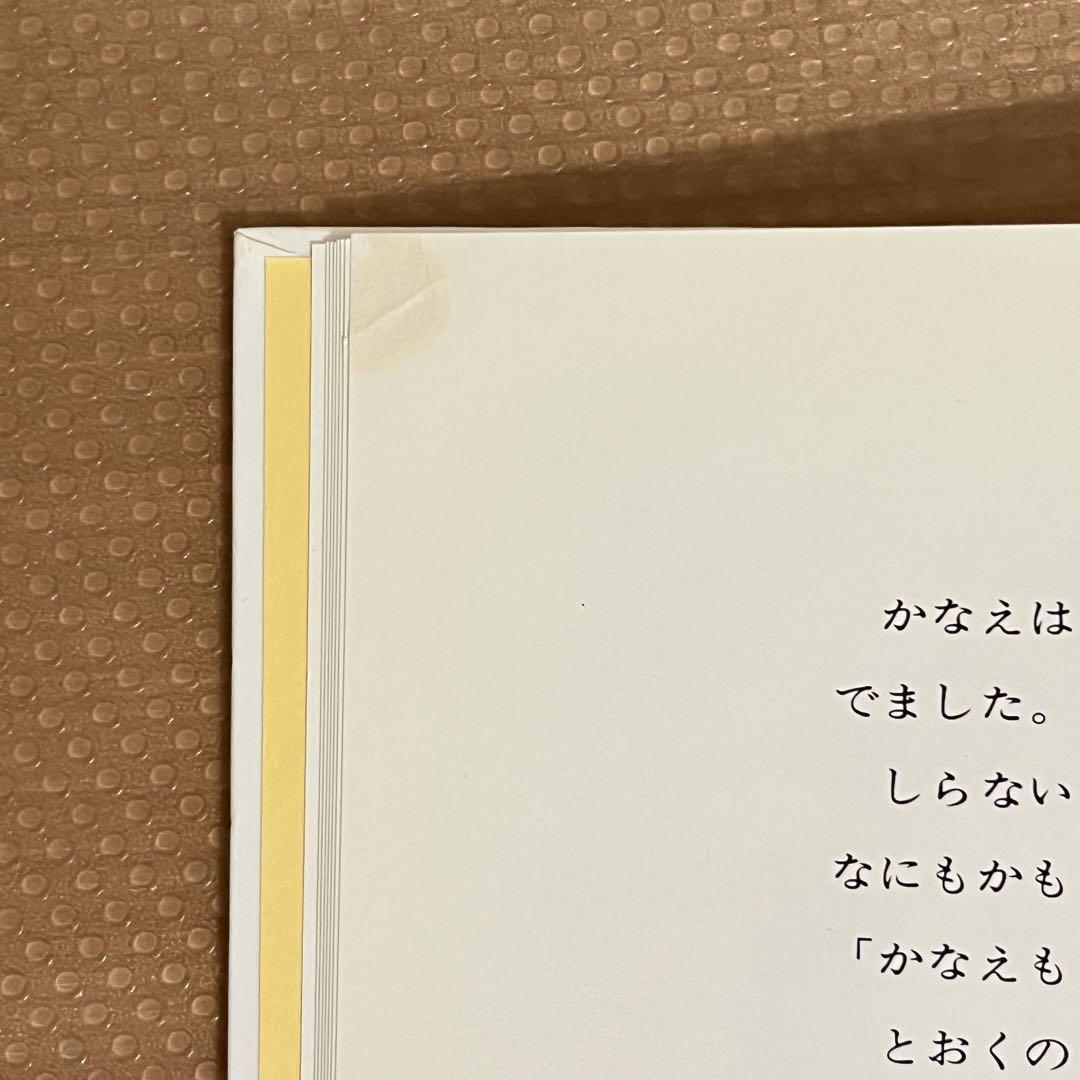 かなえは
でました。
しらない
なにもかも
「かなえも
とおくの